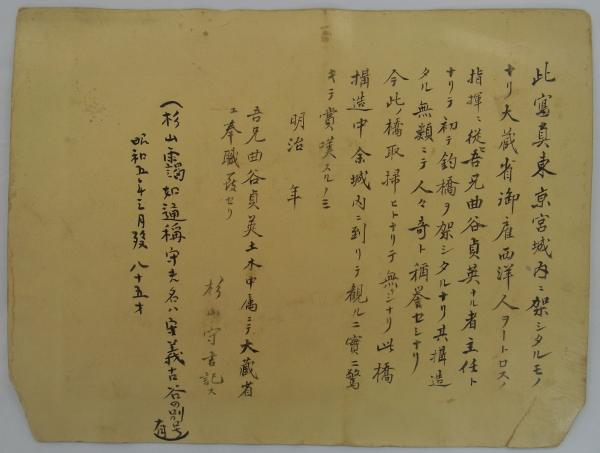 此寫真東京宮城内ニ架シタルモノ
ナリ大蔵省御雇西洋人ヲートロスノ
指揮ニ從吾兄曲谷貞英ナル者主任ト
ナリテ初テ釣橋ヲ架シタルナリ其搆造
タル無類ニテ人々奇ト稱誉セシナリ
今此ノ橋取掃ヒトナリテ無シナリ此橋
搆造中余城内ニ到リテ觀ルニ實ニ驚
キテ賞嘆スルノミ
明治 年
吾兄曲谷貞英土木中属ニテ大蔵省
ニ奉職致セリ
杉山守吉記ス
(杉山靄如通稱守夫名ハ守義吉谷の別号
有)
昭和五年三月發 八十五才